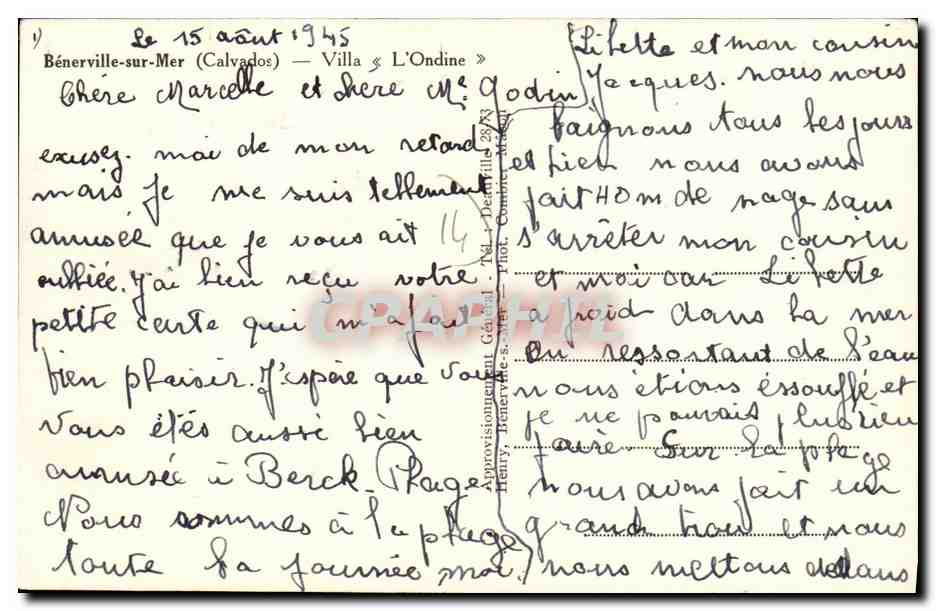 1)
Le 15 août 1945
Bénerville-sur-Mer (Calvados) — Villa « L'Ondine »
Chère Marcelle et chère Me Godin
excusez. moi de mon retard,
mais je me suis tellement
amusée que je vous ait
oubliée. J'ai bien reçu votre
petite carte qui m'a fait
bien plaisir. J'espère que vous
vous étés aussi bien
amusée à Berck-Plage
Nous sommes à la plage
toute la journée, moi,
14
Approvisionnement Général - Tél. : Deauville 28/73
Henry, Bénerville-s.-Mer — Phot. Combier Mâcon
Libette et mon cousin
Jacques. nous nous
baignons tous les jours
et hier nous avons
fait 40m de nage sans
s'arrêter mon cousin
et moi car Libette
a froid dans la mer
En ressortant de l'eau
nous étions éssoufflé et
je ne pouvais plus rien
faire. Sur la plage
nous avons fait un
grand trou et nous
nous mettons dedans
CPARHIL